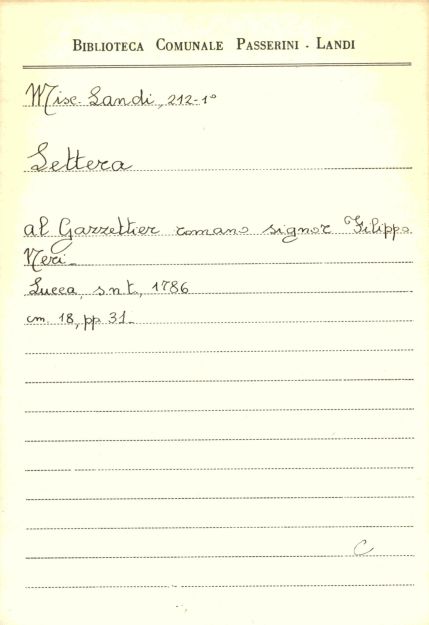 BIBLIOTECA COMUNALE PASSERINI - LANDI
Misc. Landi, 212-1°
Lettera
al Gazzettier romano signor Filippo
Neri_
Lucca, s.n.t., 1786
cm. 18, pp 31_
C